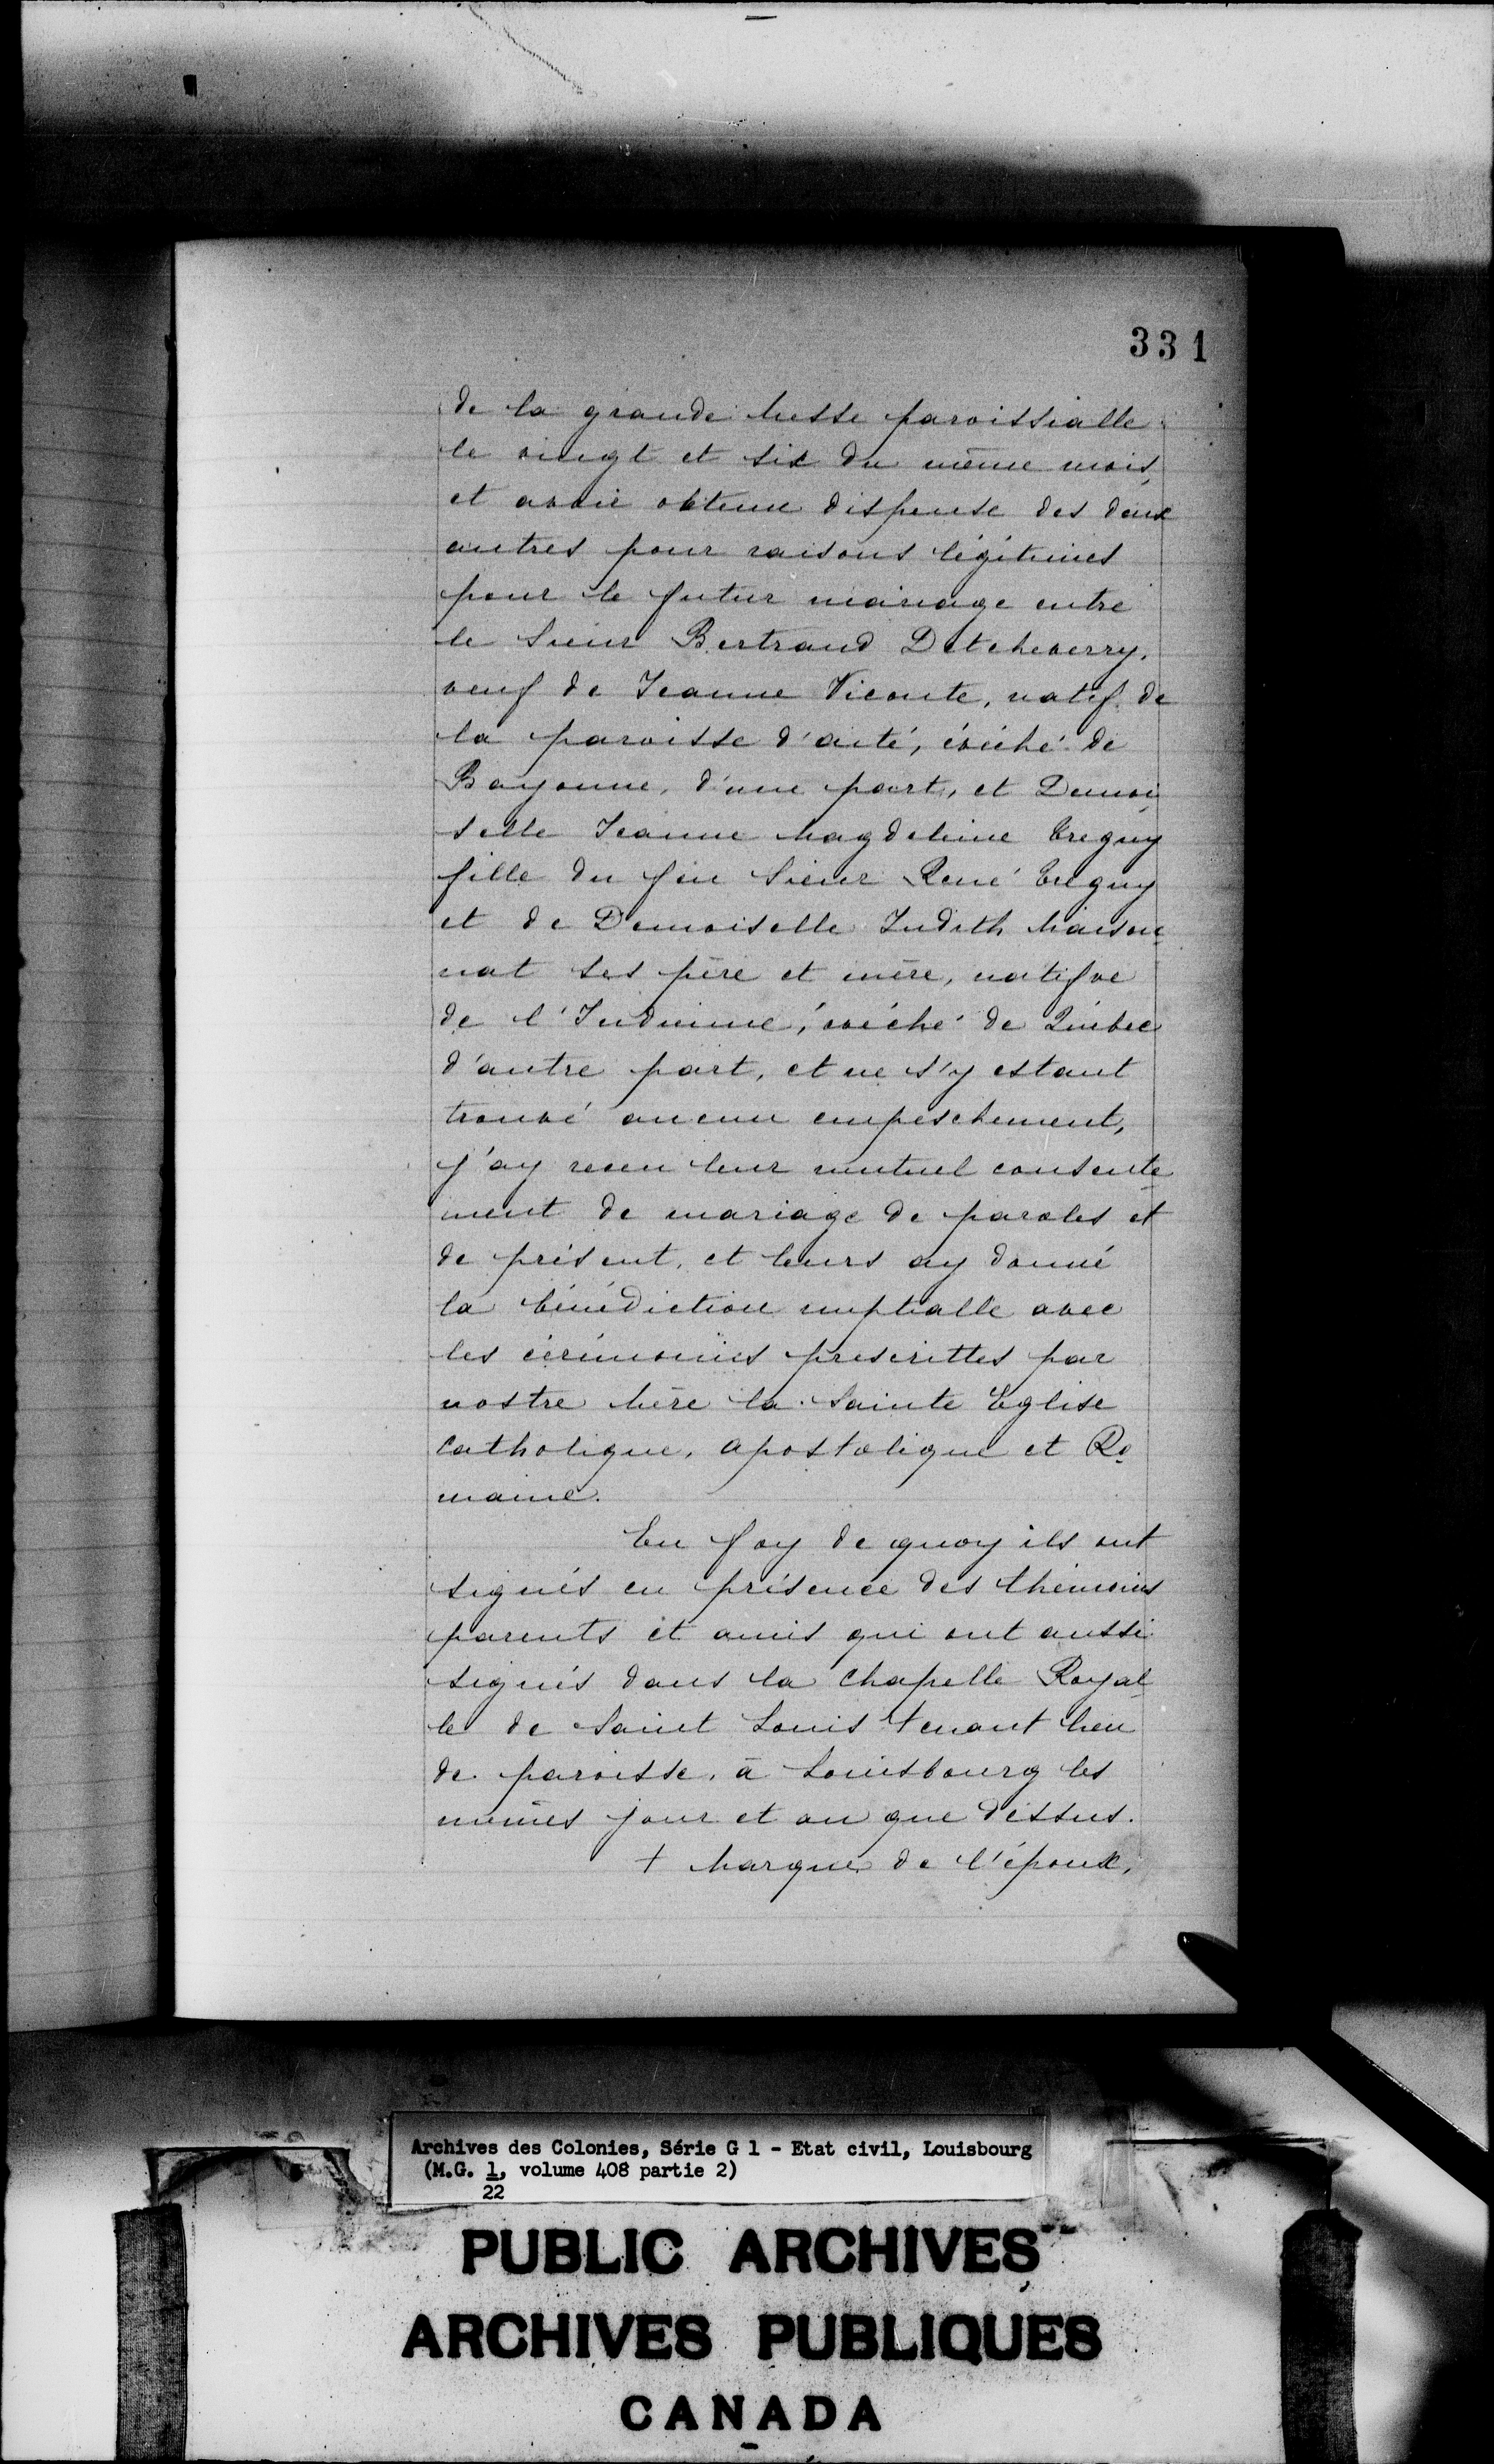 331
de la grande Messe paroissialle
le vingt et six du même mois,
et avoir obtenu dispense des deux
autres pour raisons légitimes
pour le futur mariage entre
le Sieur Bertrand Detcheverry,
veuf de Jeanne Viconte, natif de
la paroisse d'aité, évêché de
Bayonne, d'une part, et Demoi
selle Jeanne Magdeleine Treguy
fille du feu Sieur René Treguy
et de Demoiselle Judith Maison
nat ses père et mère, natifve
de l'Indienne, évêché de Québec
d'autre part, et ne s'y estant
trouvé aucun empeschement,
j'ay receu leur mutuel consente
ment de mariage de paroles et
de présent, et leurs ay donné
la bénédiction nuptialle avec
les cérémonies prescrittes par
nostre Mère la Sainte Eglise
Catholique, Apostolique et Ro
maine.
En foy de quoy ils ont
signés en présence des thémoins
parents et amis qui ont aussi
signés dans la Chapelle Royal
le de Saint Louis tenant lieu
de paroisse, à Louisbourg les
mêmes jour et an que dessus.
+ Marque de l'époux,
Archives des Colonies, Série G 1 - Etat civil, Louisbourg
(M.G. 1, volume 408 partie 2)
22
PUBLIC ARCHIVES
ARCHIVES PUBLIQUES
CANADA